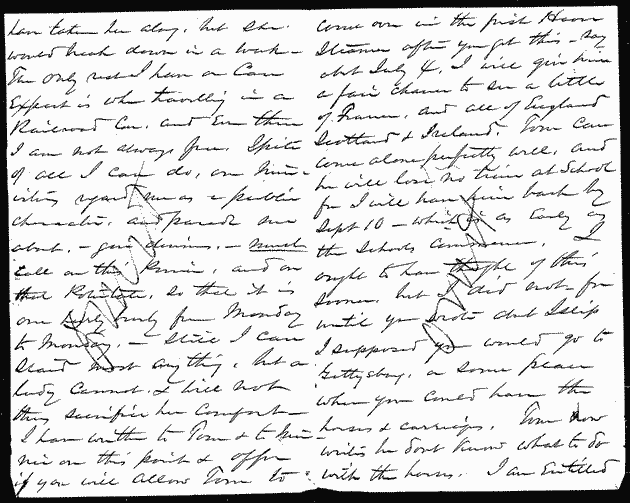 have taken her along, but she
would break down in a week -
The only rest I have or can
Expect is when travelling in a
Railroad Car, and Even then
I am not always free. Spite
of all I can do, our Min-
isters regard me as a public
character, and parade me
about, - give dinners, - must
call on this and on
that so that it is
one from Monday
to Monday. - Still I can
stand most anything, but a
lady cannot, & will not
thus sacrifice her comfort -
I have written to Tom & to Min-
nie on this point & offer
if you will allow Tom to
come over in the first
Steamer after you get this - say
abt July 4, I will give him
a fair chance to see a little
of France, and all of England
Scotland & Ireland. Tom can
come alone perfectly well, and
he will lose no time at School
for I will have him back by
Sept 10 - which is as Early as
the Schools commence. I
ought to have thought of this
sooner, but I did not - for
until you wrote abt Islip
I supposed you would go to
Gettysburg, or some place
where you could have the
horses & carriages. Tom now
writes he dont know what to do
with the horses. I am Entitled
Omit
Omit